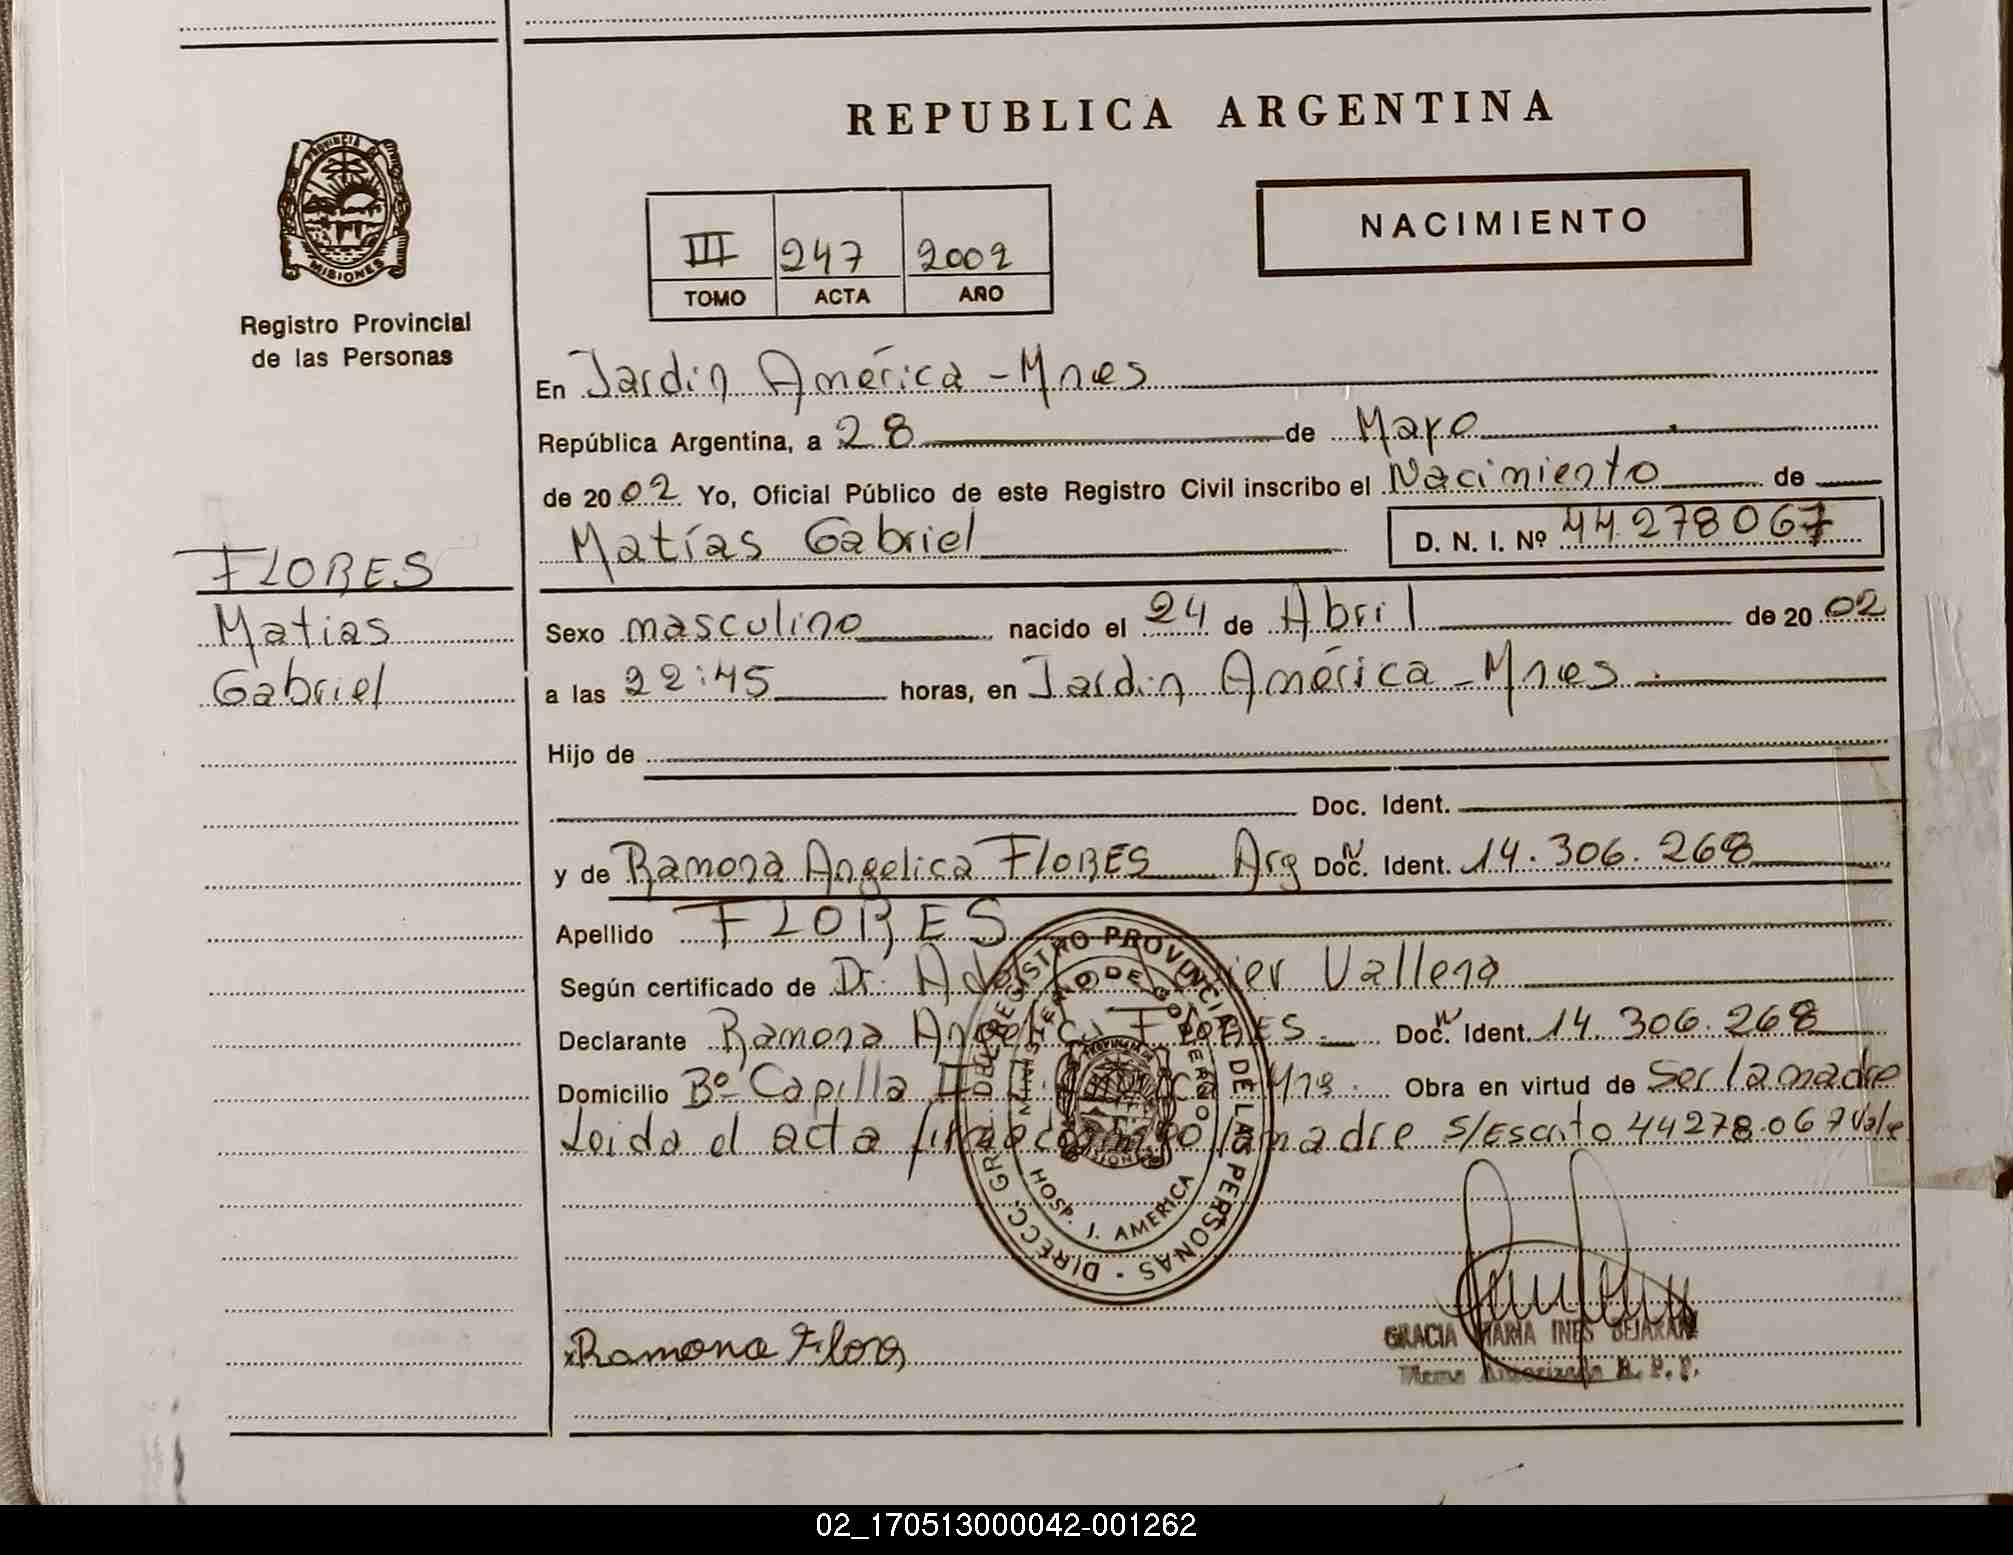 REPUBLICA ARGENTINA
PROVINCIA DE
MISIONES
Registro Provincial
de las Personas
III 247 2002
TOMO ACTA AÑO
NACIMIENTO
En Jardín América - Mnes
República Argentina, a 28 de Mayo
de 2002 Yo, Oficial Público de este Registro Civil inscribo el Nacimiento de
Matías Gabriel D. N. I. Nº 44278067
FLORES
Matias
Gabriel
Sexo masculino nacido el 24 de Abril de 2002
a las 22:45 horas, en Jardín América - Mnes
Hijo de
Doc. Ident.
y de Ramona Angelica FLORES Arg Doc. Ident. 14.306.268
Apellido FLORES
Según certificado de Dr. Vallena
Declarante Ramona Angelica FLORES Doc. Ident. 14.306.268
Domicilio Bº Capilla II Mns. Obra en virtud de Ser la madre
Leida el acta la madre s/Escrito 44278.067 Vale
DIRECC. GRAL. DEL REGISTRO PROVINCIAL DE LAS PERSONAS
MINISTERIO DE GOBIERNO
HOSP. J. AMERICA
Ramona Flores
GRACIA MARIA INES BEJARANO
R. P. P.
02_170513000042-001262